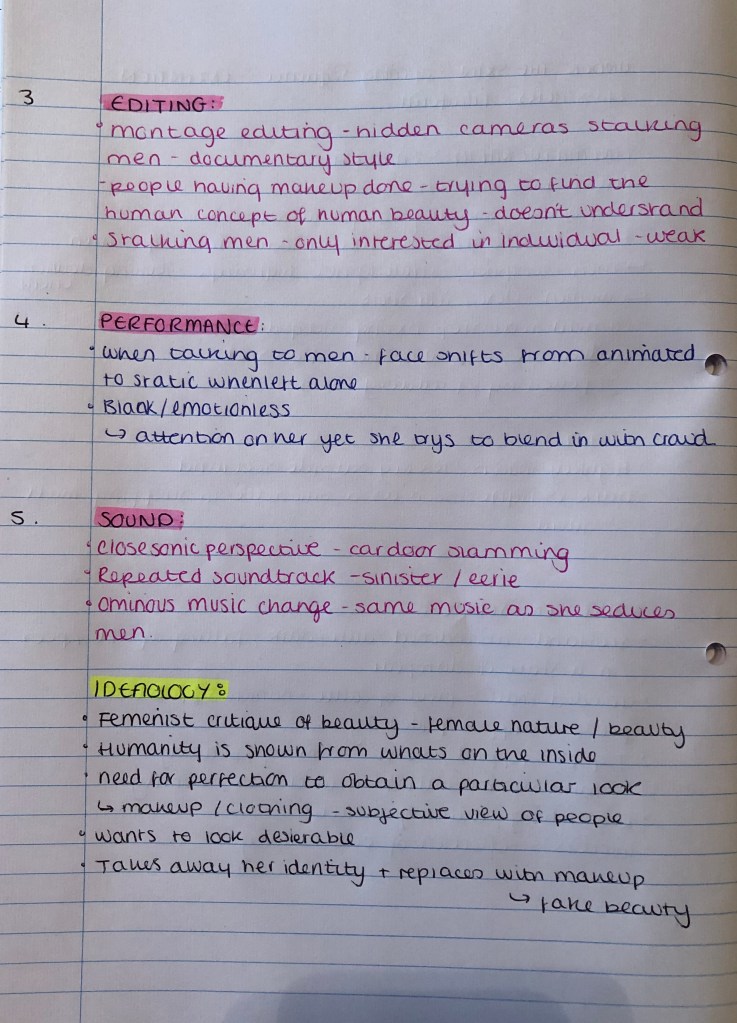 3 EDITING:
• montage editing - hidden cameras stalking
men - documentary style
- people having makeup done - trying to find the
human concept of human beauty - doesn't understand
• Stalking men - only interested in individual - weak
4. PERFORMANCE:
• when talking to men - face shifts from animated
to static when left alone
• Blank/emotionless
↳ attention on her yet she trys to blend in with crowd
5. SOUND:
• close sonic perspective - car door slamming
• Repeated soundtrack - sinister / eerie
• Ominous music change - same music as she seduces
men.
IDEAOLOGY:
• Femenist critique of beauty - female nature / beauty
• Humanity is shown from whats on the inside
• need for perfection to obtain a particular look
↳ makeup / clothing - subjective view of people
• wants to look desierable
• Takes away her identity + replaces with makeup
↳ fake beauty